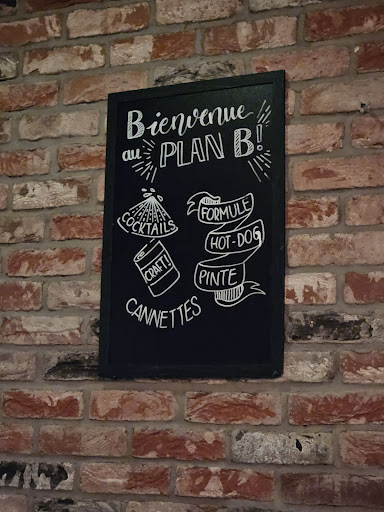 Bienvenue
au PLAN B!
COCKTAILS
CRAFT!
CANNETTES
FORMULE
HOT-DOG
PINTE